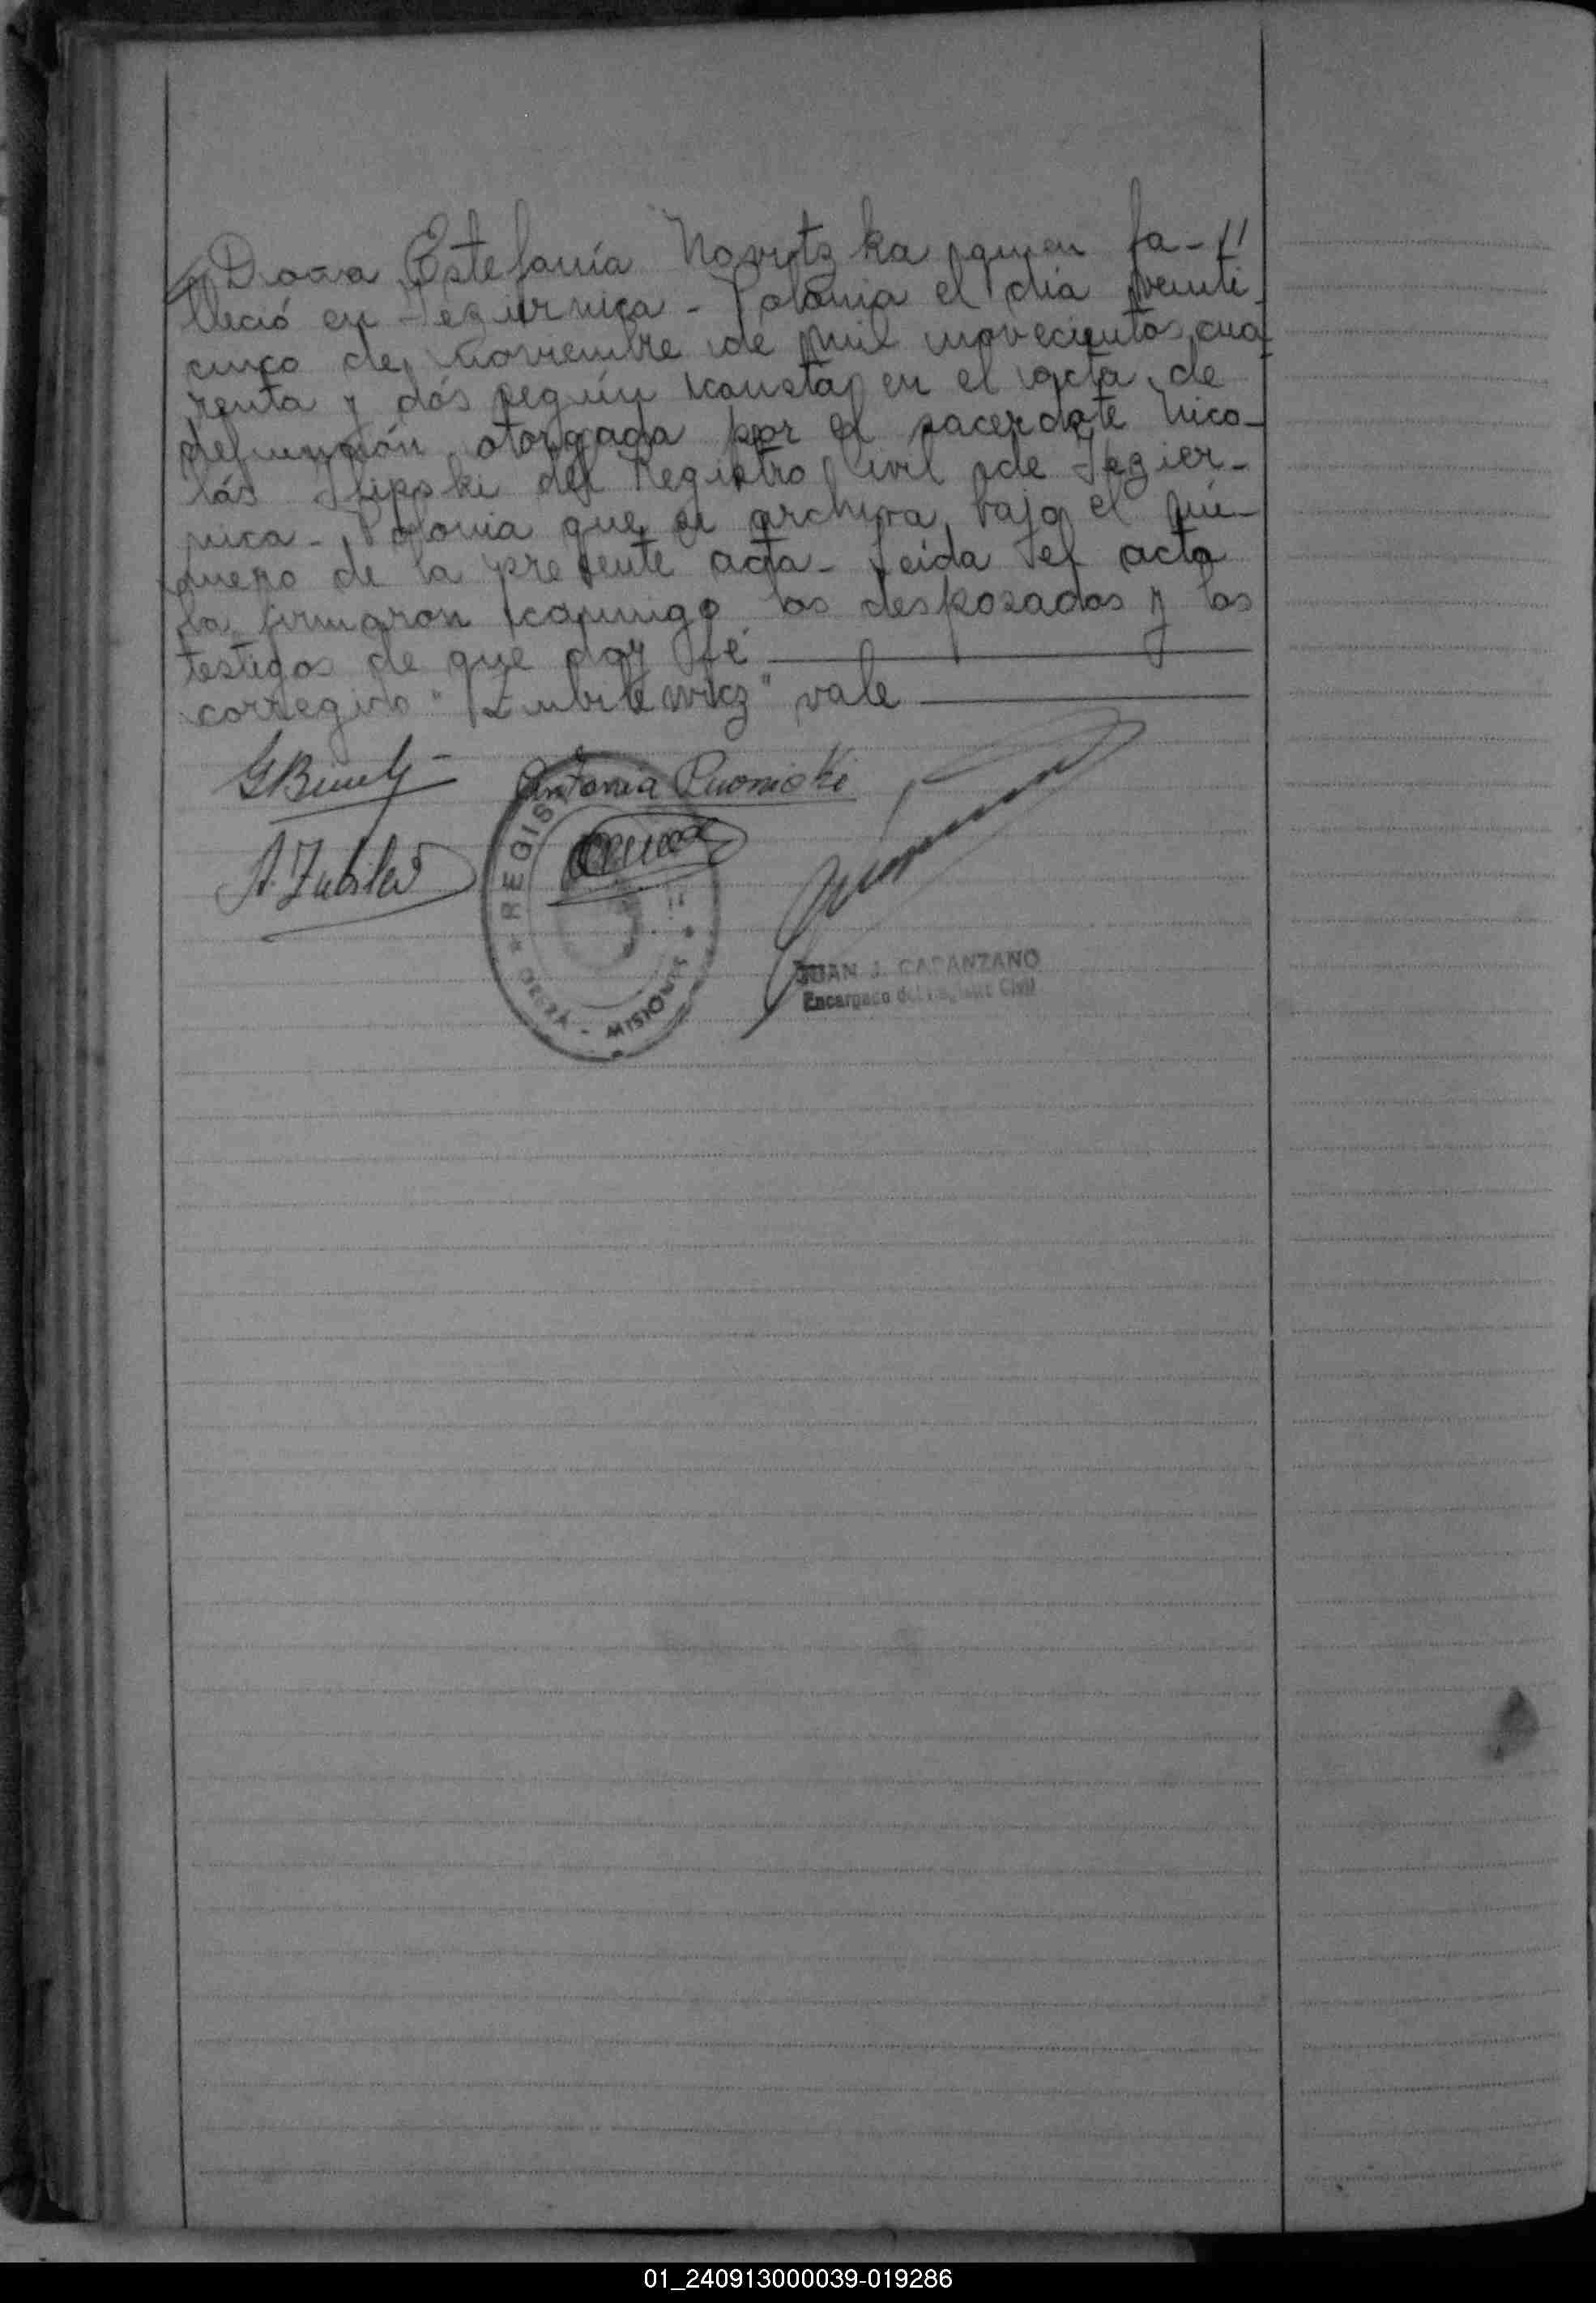 Doña Estefanía Novitzka quien fa-//
lleció en Jeziernica - Polonia el día veinti-
cinco de noviembre de mil novecientos cua
renta y dós según consta en el acta de
defunción otorgada por el sacerdote Nico-
lás Slipski del Registro Civil de Jezier-
nica - Polonia que se archiva bajo el nú-
mero de la presente acta - Leida el acta
la firmaron conmigo los desposados y los
testigos de que doy fé
corregido "Zubilewicz" vale
Antonia
REGIS
MISIONES
JUAN J. CAPANZANO
Encargado del Registro Civil
01_240913000039-019286